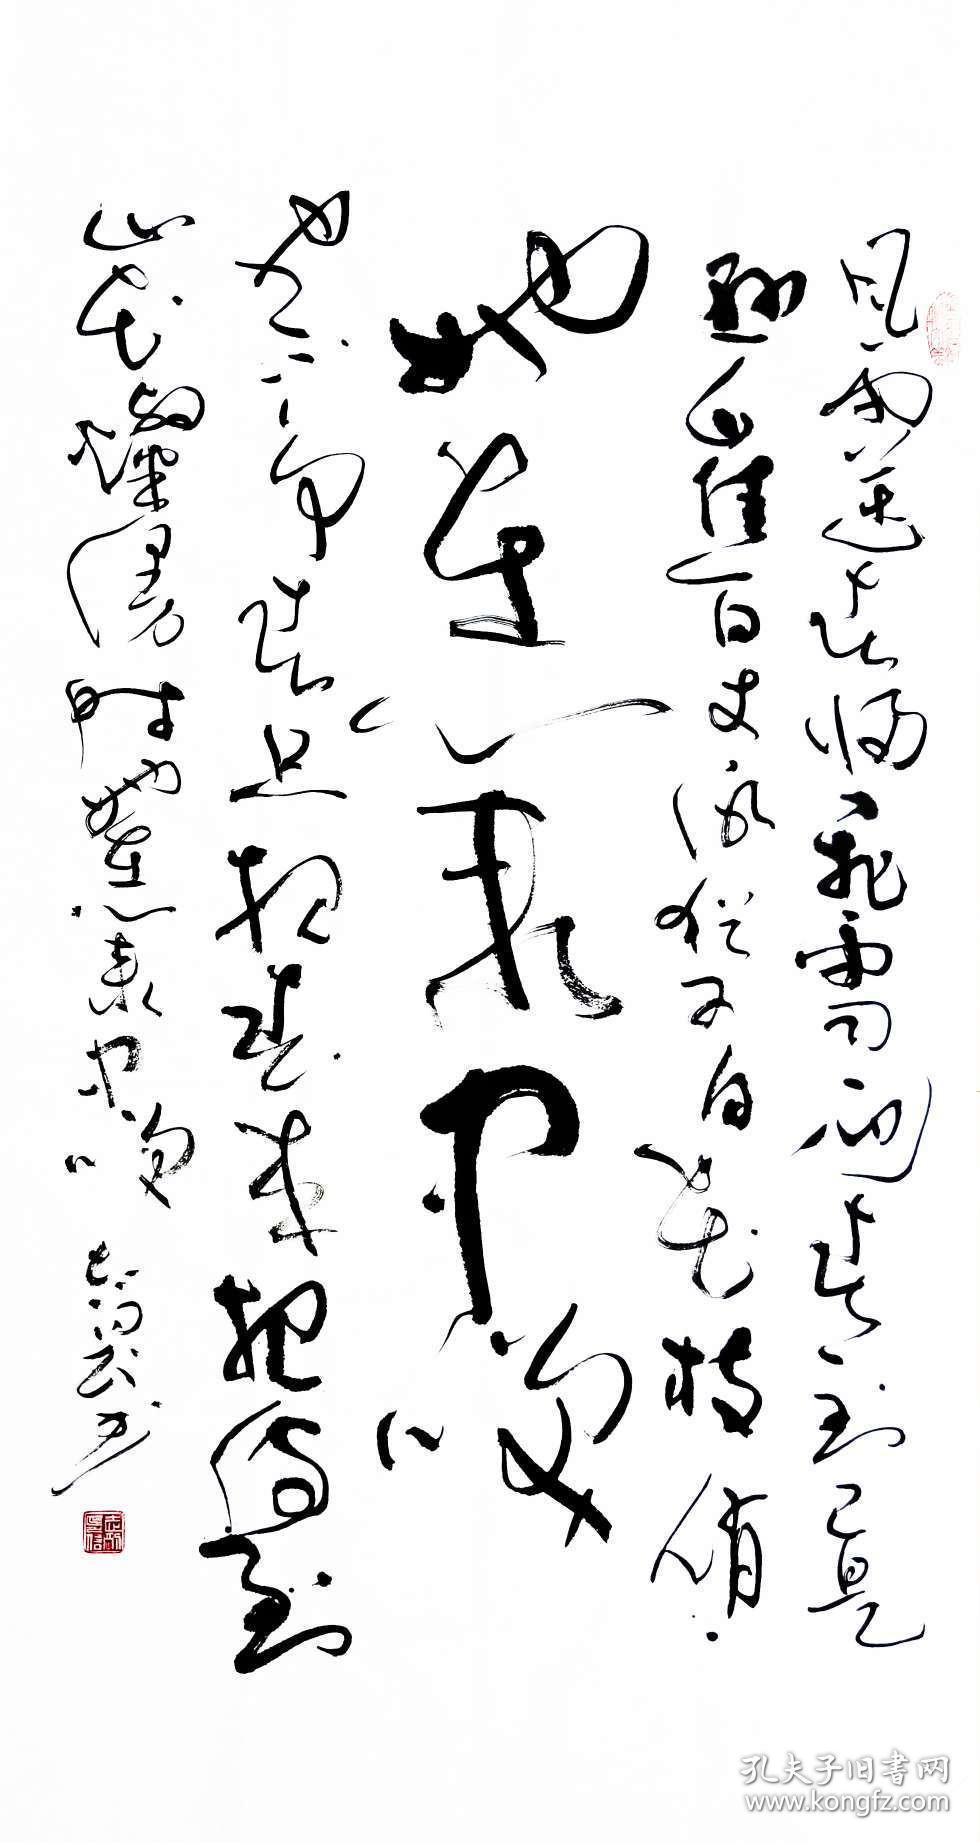 风雨送春归飛雪迎春到已是
懸崖百丈冰猶有花枝俏
她在叢中笑
也不争春只把春来报待到
山花爛漫時她在叢中笑
孔夫子旧书网
www.kongfz.com